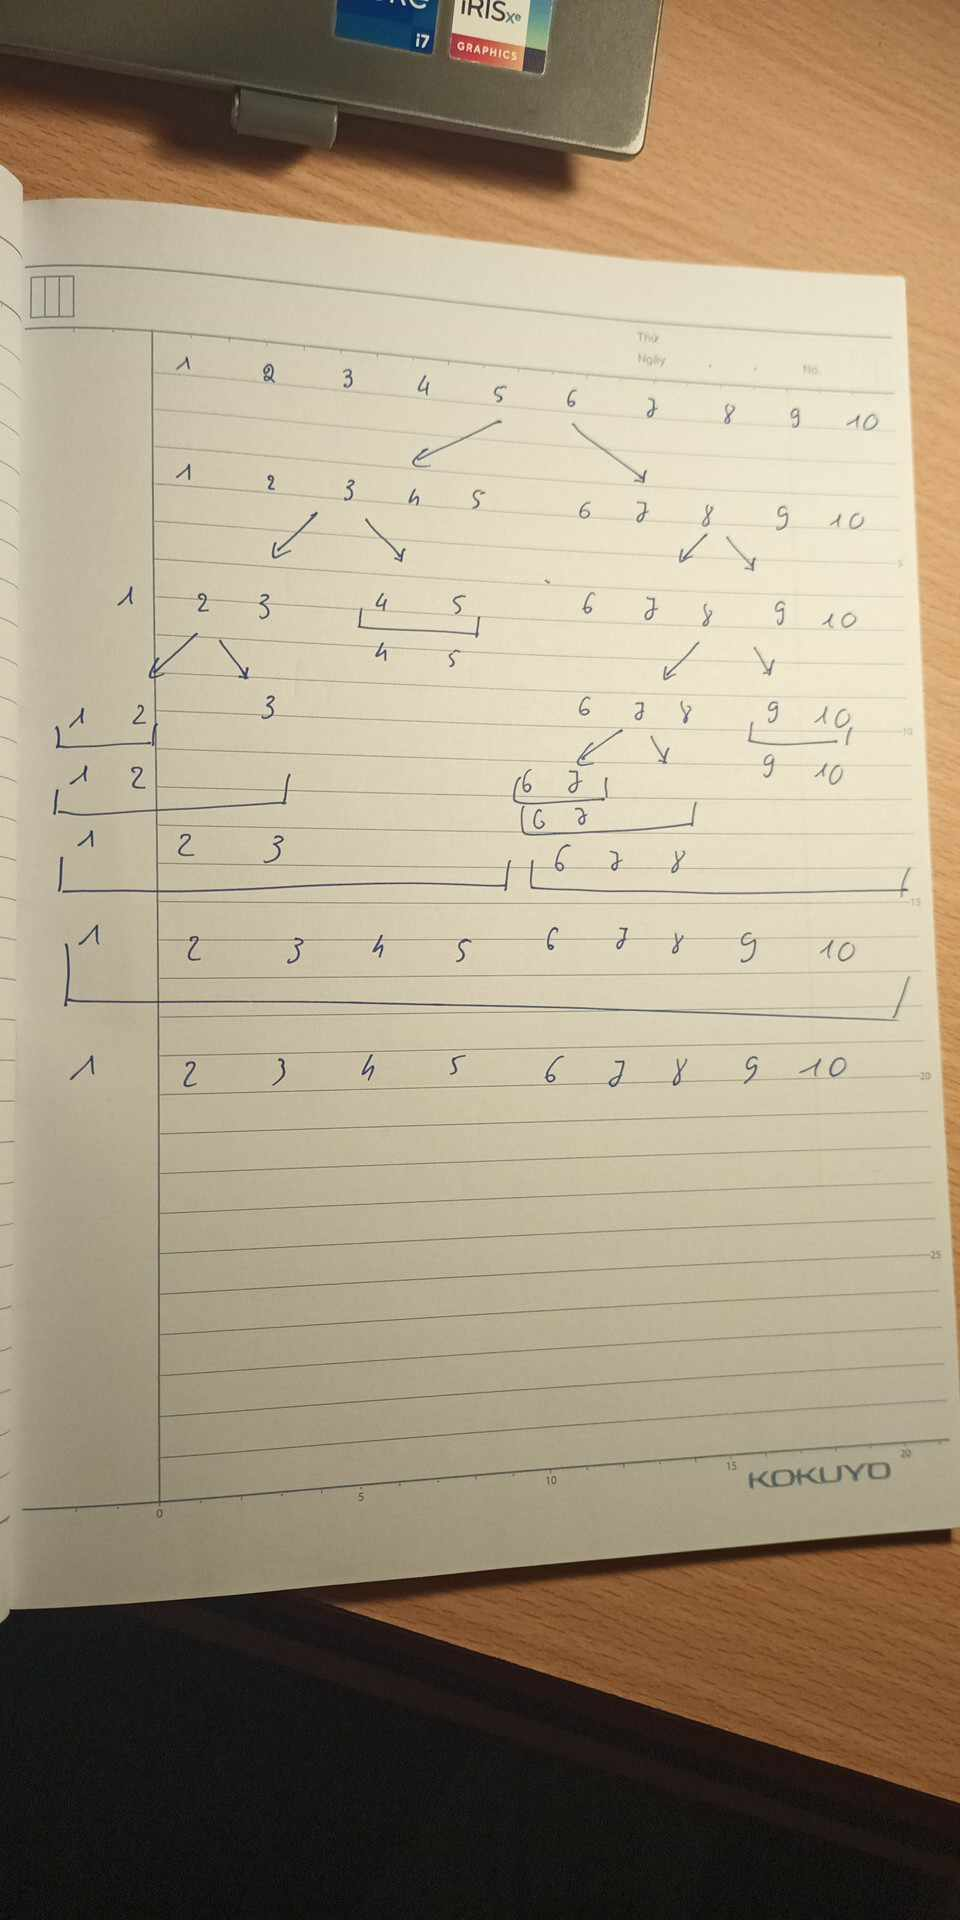 i7
iRIS Xe
GRAPHICS
Thứ
Ngày . . No.
1 2 3 4 5 6 7 8 9 10
1 2 3 4 5 6 7 8 9 10
5
1 2 3 4 5 6 7 8 9 10
4 5
1 2 3 6 7 8 9 10
10
1 2 6 7 9 10
6 7
1 2 3 6 7 8
15
1 2 3 4 5 6 7 8 9 10
1 2 3 4 5 6 7 8 9 10
20
25
0 5 10 15 20
KOKUYO